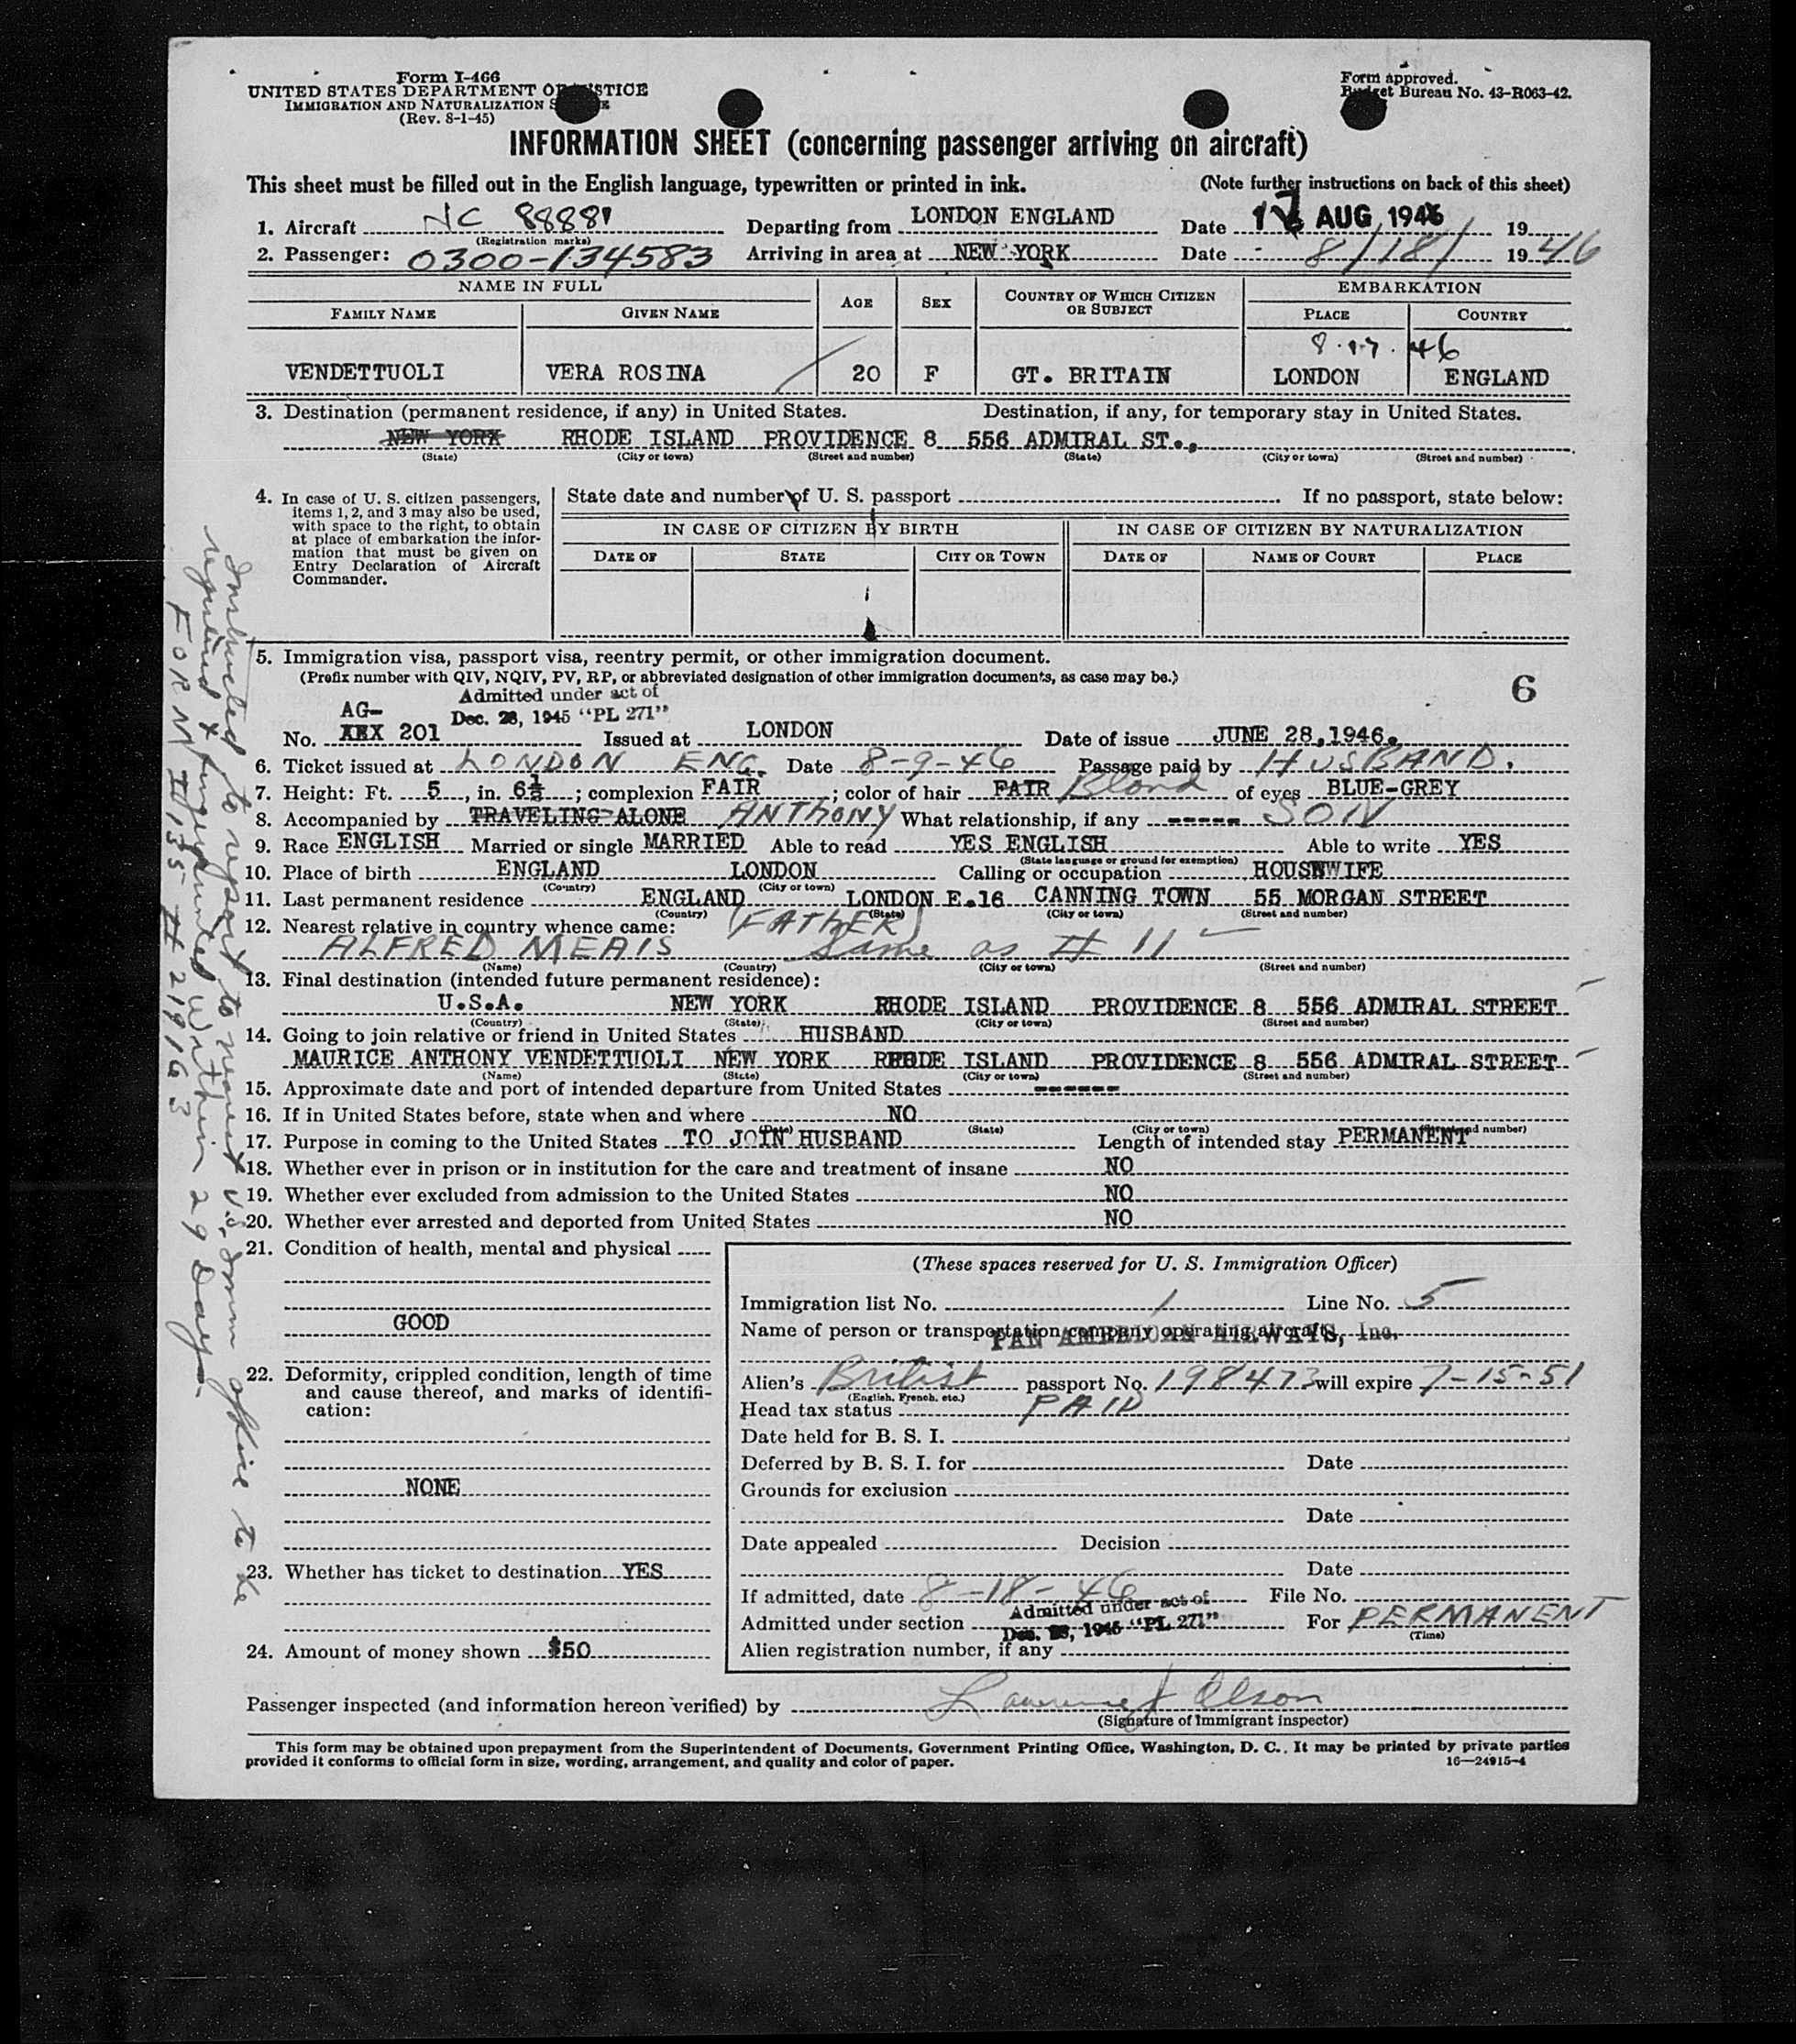 Form I-466
UNITED STATES DEPARTMENT OF JUSTICE
IMMIGRATION AND NATURALIZATION S E
(Rev. 8-1-45)
Form approved.
Budget Bureau No. 43-R063-42.
INFORMATION SHEET (concerning passenger arriving on aircraft)
This sheet must be filled out in the English language, typewritten or printed in ink. (Note further instructions on back of this sheet)
1. Aircraft NC 88881 Departing from LONDON ENGLAND Date 17 AUG 1946 19
(Registration marks)
2. Passenger: 0300-134583 Arriving in area at NEW YORK Date 8/18/ 1946
NAME IN FULL AGE SEX COUNTRY OF WHICH CITIZEN OR SUBJECT EMBARKATION
FAMILY NAME GIVEN NAME PLACE COUNTRY
8.17.46
VENDETTUOLI VERA ROSINA 20 F GT. BRITAIN LONDON ENGLAND
3. Destination (permanent residence, if any) in United States. Destination, if any, for temporary stay in United States.
NEW YORK RHODE ISLAND PROVIDENCE 8 556 ADMIRAL ST.,
(State) (City or town) (Street and number) (State) (City or town) (Street and number)
4. In case of U. S. citizen passengers, items 1, 2, and 3 may also be used, with space to the right, to obtain at place of embarkation the information that must be given on Entry Declaration of Aircraft Commander.
State date and number of U. S. passport If no passport, state below:
IN CASE OF CITIZEN BY BIRTH IN CASE OF CITIZEN BY NATURALIZATION
DATE OF STATE CITY OR TOWN DATE OF NAME OF COURT PLACE
5. Immigration visa, passport visa, reentry permit, or other immigration document.
(Prefix number with QIV, NQIV, PV, RP, or abbreviated designation of other immigration documents, as case may be.)
6
Admitted under act of
AG- Dec. 28, 1945 "PL 271"
No. XEX 201 Issued at LONDON Date of issue JUNE 28,1946.
6. Ticket issued at LONDON ENG. Date 8-9-46 Passage paid by HUSBAND.
7. Height: Ft. 5, in. 6½; complexion FAIR; color of hair FAIR Blond of eyes BLUE-GREY
8. Accompanied by TRAVELING ALONE ANTHONY What relationship, if any ----- SON
9. Race ENGLISH Married or single MARRIED Able to read YES ENGLISH Able to write YES
(State language or ground for exemption)
10. Place of birth ENGLAND LONDON Calling or occupation HOUSEWIFE
(Country) (City or town)
11. Last permanent residence ENGLAND LONDON E.16 CANNING TOWN 55 MORGAN STREET
(Country) (State) (City or town) (Street and number)
12. Nearest relative in country whence came: (FATHER)
ALFRED MEAIS Same as # 11
(Name) (Country) (City or town) (Street and number)
13. Final destination (intended future permanent residence):
U.S.A. NEW YORK RHODE ISLAND PROVIDENCE 8 556 ADMIRAL STREET
(Country) (State) (City or town) (Street and number)
14. Going to join relative or friend in United States HUSBAND
MAURICE ANTHONY VENDETTUOLI NEW YORK RHODE ISLAND PROVIDENCE 8 556 ADMIRAL STREET
(Name) (State) (City or town) (Street and number)
15. Approximate date and port of intended departure from United States ------
16. If in United States before, state when and where NO
(Date) (State) (City or town) (Street and number)
17. Purpose in coming to the United States TO JOIN HUSBAND Length of intended stay PERMANENT
18. Whether ever in prison or in institution for the care and treatment of insane NO
19. Whether ever excluded from admission to the United States NO
20. Whether ever arrested and deported from United States NO
21. Condition of health, mental and physical
GOOD
22. Deformity, crippled condition, length of time and cause thereof, and marks of identification:
NONE
23. Whether has ticket to destination YES
24. Amount of money shown $50
(These spaces reserved for U. S. Immigration Officer)
Immigration list No. 1 Line No. 5
Name of person or transportation company operating aircraft
PAN AMERICAN AIRWAYS, Inc.
Alien's British passport No. 198473 will expire 7-15-51
(English, French, etc.)
Head tax status PAID
Date held for B. S. I.
Deferred by B. S. I. for Date
Grounds for exclusion
Date
Date appealed Decision
Date
If admitted, date 8-18-46 File No.
Admitted under section Admitted under act of Dec. 28, 1945 "PL 271" For PERMANENT
(Time)
Alien registration number, if any
Passenger inspected (and information hereon verified) by Lawrence J Olson
(Signature of immigrant inspector)
This form may be obtained upon prepayment from the Superintendent of Documents, Government Printing Office, Washington, D. C. It may be printed by private parties
provided it conforms to official form in size, wording, arrangement, and quality and color of paper. 16—24915-4
Instructed to report to nearest U.S. Imm office to be
registered & fingerprinted within 29 Days.
FORM I 135 # 219163